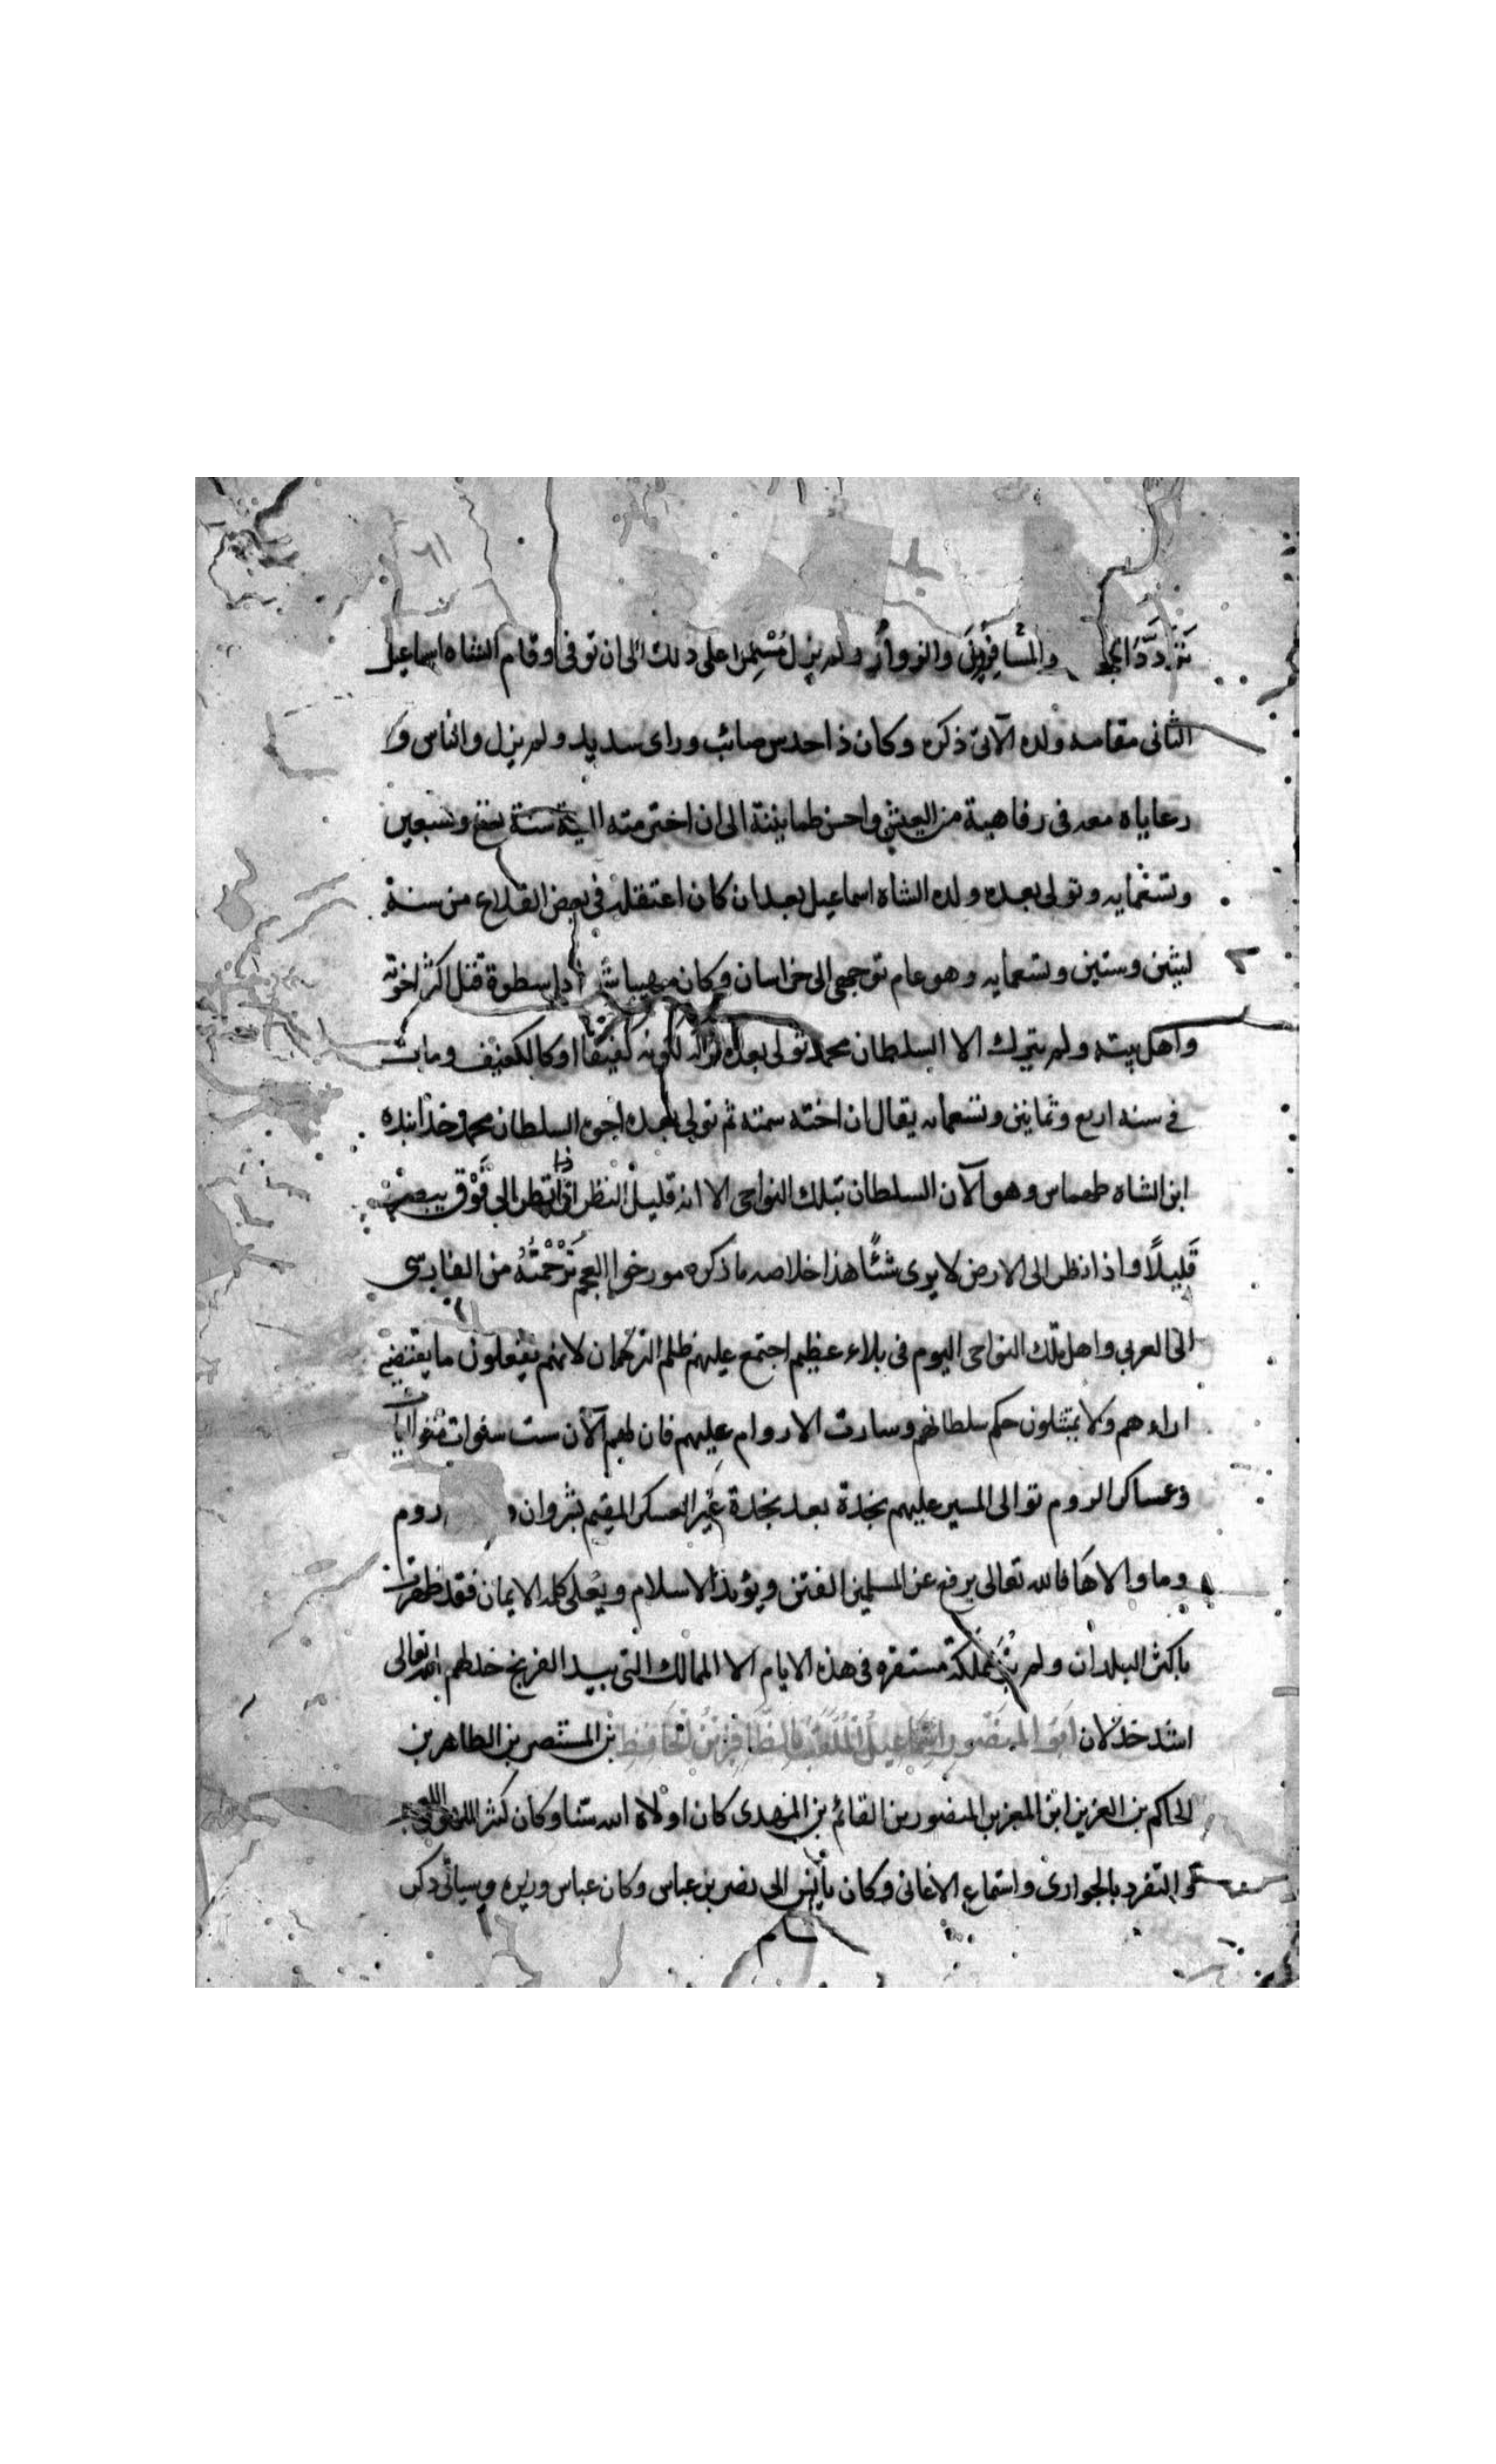 والمسافرين والزوار ولم يزل مستمرا على ذلك الى ان توفى وقام الشاه اسماعيل
الثانى مقامه ولده الآتى ذكره وكان ذا حدس صائب وراى سديد ولم يزل والناس و
رعاياه معه فى رفاهية من العيش واحسن طمانينة الى ان اخترمته المنية سنة وسبعين
وتسعمايه وتولى بعده ولده الشاه اسماعيل بعد ان كان اعتقله فى بعض القلاع من سنة
وستين وتسعمايه وهو عام توجهى الى خراسان وكان مهيبا ذا سطوة قتل اكثر اخوته
واهل بيته ولم يترك الا السلطان محمد تولى بعده لكونه كفيفا او كالكفيف ومات
فى سنه اربع وثمانين وتسعمايه يقال ان اخته سمته ثم تولى بعده اخوه السلطان محمد خذابنده
ابن الشاه طهماس وهو الآن السلطان بتلك النواحى الا انه قليل النظر اذا نظر الى فوق يبصر
قليلا واذا نظر الى الارض لا يرى شئا هذا خلاصه ما ذكره مورخوا العجم ترجمته من الفارسى
الى العربى واهل تلك النواحى اليوم فى بلاء عظيم اجتمع عليهم ظلم التركمان لانهم يفعلون ما يقتضيه
اراءهم ولا يمتثلون حكم سلطانهم وسارت الاروام عليهم فان لهم الآن ست سنوات
وعساكر الروم توالى المسير عليهم نجدة بعد نجدة غير العسكر المقيم بشروان روم
وما والاها فالله تعالى يرفع عن المسلمين الفتن ويؤيد الاسلام ويعلى كلمه الايمان فقد ظهرت
باكثر البلدان ولم مملكة مستقره فى هذه الايام الا الممالك التى بيد الفرنج خذلهم الله تعالى
اشد خذلان ابو المنصور اسماعيل الملقب بالظافر بن الحافظ بن المستنصر بن الظاهر بن
الحاكم بن العزيز ابن المعز بن المنصور بن القائم بن المهدى كان اولاد ابيه سنا وكان كثير اللهو واللعب
والتفرد بالجوارى واستماع الاغانى وكان يأنس الى نصر بن عباس وكان عباس وزيره وسيأتى ذكر